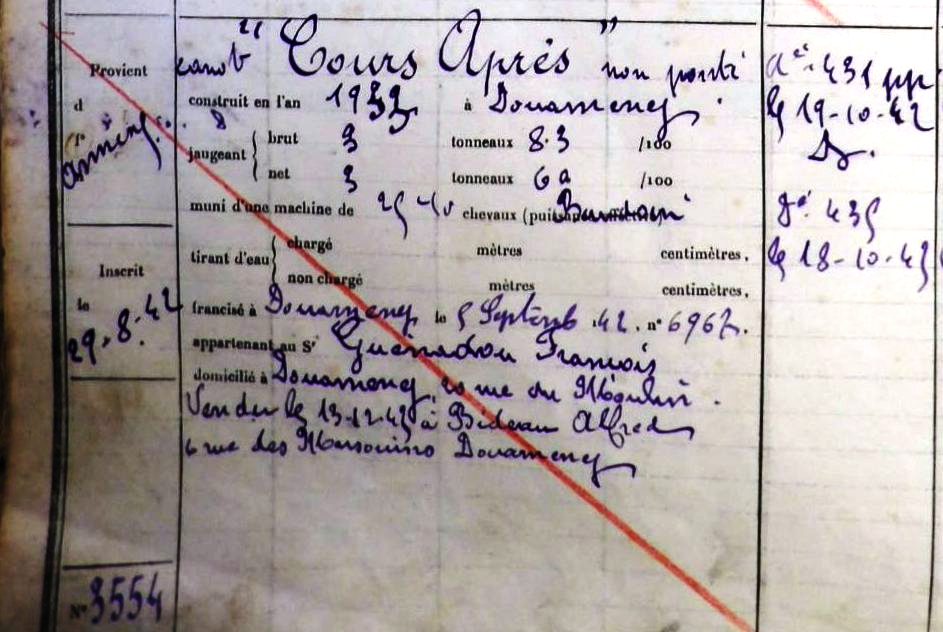 Provient
d
canot "Cours Après" non ponté
construit en l'an 1933 à Douarnenez.
jaugeant
brut 3 tonneaux 83 /100
net 3 tonneaux 62 /100
muni d'une machine de chevaux Baudouin
tirant d'eau
chargé mètres centimètres.
non chargé mètres centimètres.
francisé à Douarnenez le 5 Septemb. 42. n° 6967.
appartenant au Sr François
domicilié à Douarnenez, rue du Moulin.
Vendu le 13-12-43 à Bideau Alfred
6 rue des Marsouins Douarnenez
Inscrit
le
29.8.42
N° 3554
431
le 19-10-42
435
le 18-10-43